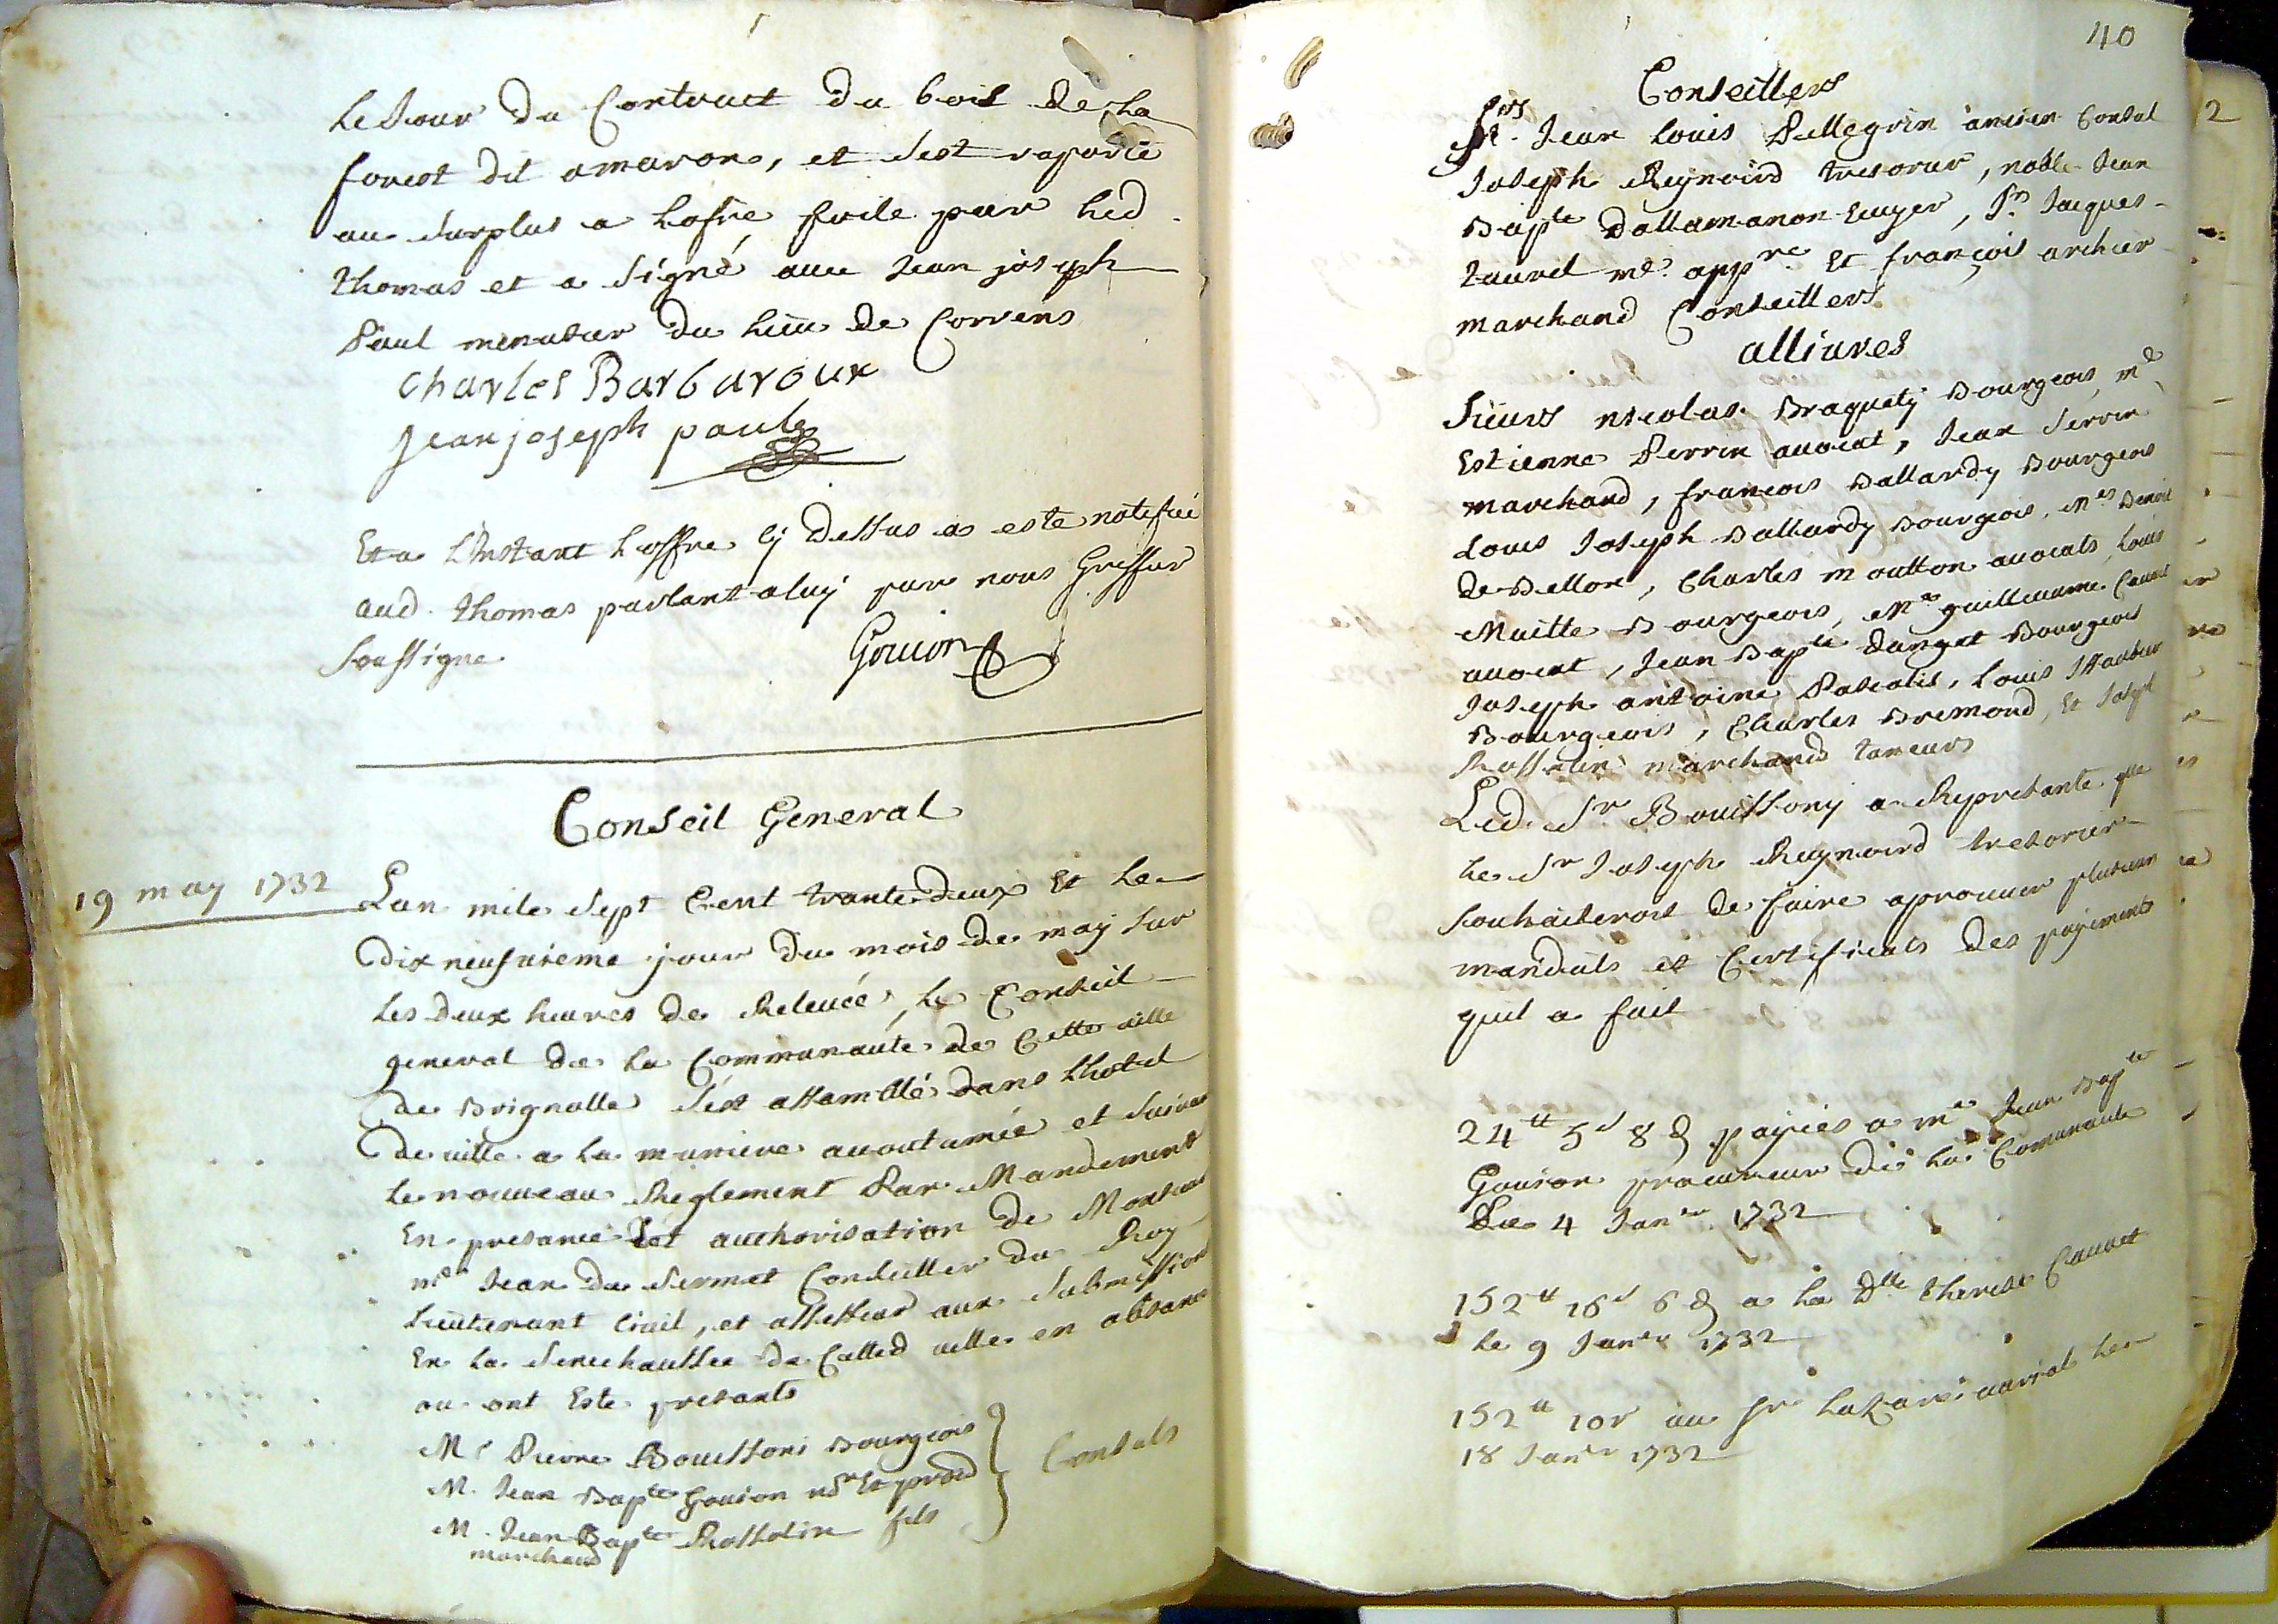 le Jour du Contract du bois de la
forest dit amaron, et s'est raporté
au surplus a lofre faite par led.
thomas et a signé avec Jean joseph
Paul menuisier du lieu de Correns
Charles Barbaroux
Jean joseph paul
Et a L'instant L'offre cy dessus a este notifiée
aud. thomas parlant a luy par nous Greffier
soussigne
Gouion
Conseil General
19 may 1732
Lan mile sept Cent trante deux et le
dix neufvieme jour du mois de may sur
les deux heures de Relevée, le Conseil
general de la Communauté de Cette ville
de Brignolle s'est assamblé dans lhotel
de ville a la maniere accoutumée et suivant
le nouveau Reglement Par Mandement
En presance Et authorisation de Monsieur
me Jean de Sermet Conseiller du Roy
Lieutenant Civil, et assesseur aux submissions
En la Senechaussee de Cetted ville en absance
ou ont Este presants
Mr Pierre Bouissoni Bourgeois
M. Jean Bapte Gouion nore Et proc
M. Jean Bapte Rossolin fils
marchand
Consuls
40
Conseillers
Srs Jean Louis Pellegrin ancien Consul
Joseph Reynaud tresorier, noble Jean
Bapte Dallamanon Ecuyer, Sr Jacques
taurel me. appre Et françois archier
marchand Conseillers
allivrés
Sieurs nicolas Braquety Bourgeois, me
Estienne Perrin avocat, Jean Serrin
marchand, francois Ballardy Bourgeois
Louis Joseph Ballardy Bourgeois, Mes Benoit
de Bellon, Charles moutton avocats, Louis
Maille Bourgeois, Me guilleaume Cauvet
avocat, Jean Bapte Danget Bourgeois
Joseph antoine Pascalis, Louis
Bourgeois, Charles Bremond, Et Joseph
Rossolin marchand taneurs
Led. Sr Bouissony a Represanté que
le Sr Joseph Reynaud tresorier
souhaiterois de faire aprouver plusieurs
mandats et Certificats des payements
quil a fait
24tt 5s 8d payées a me Jean Bapte
Gouion procureur de la Comunauté
Le 4 Janer 1732
152tt 16s 6d a la Dlle therese Cauvet
le 9 Janer 1732
152tt 10s au Sr Lazare le
18 Janer 1732
2